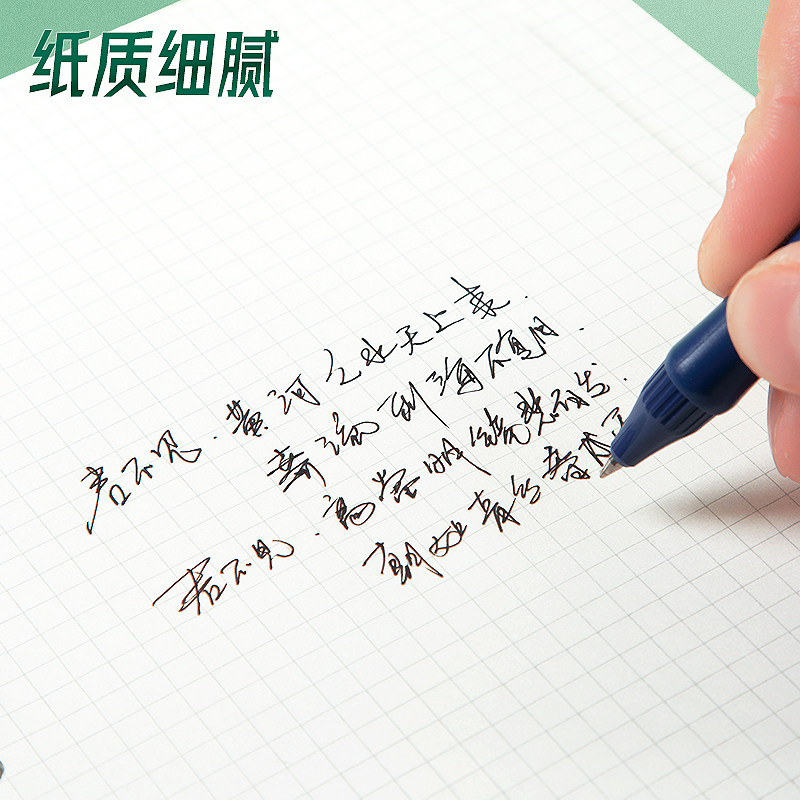 纸质细腻
君不见.黄河之水天上来.
奔流到海不复回.
君不见.高堂明镜悲白发.
朝如青丝暮成